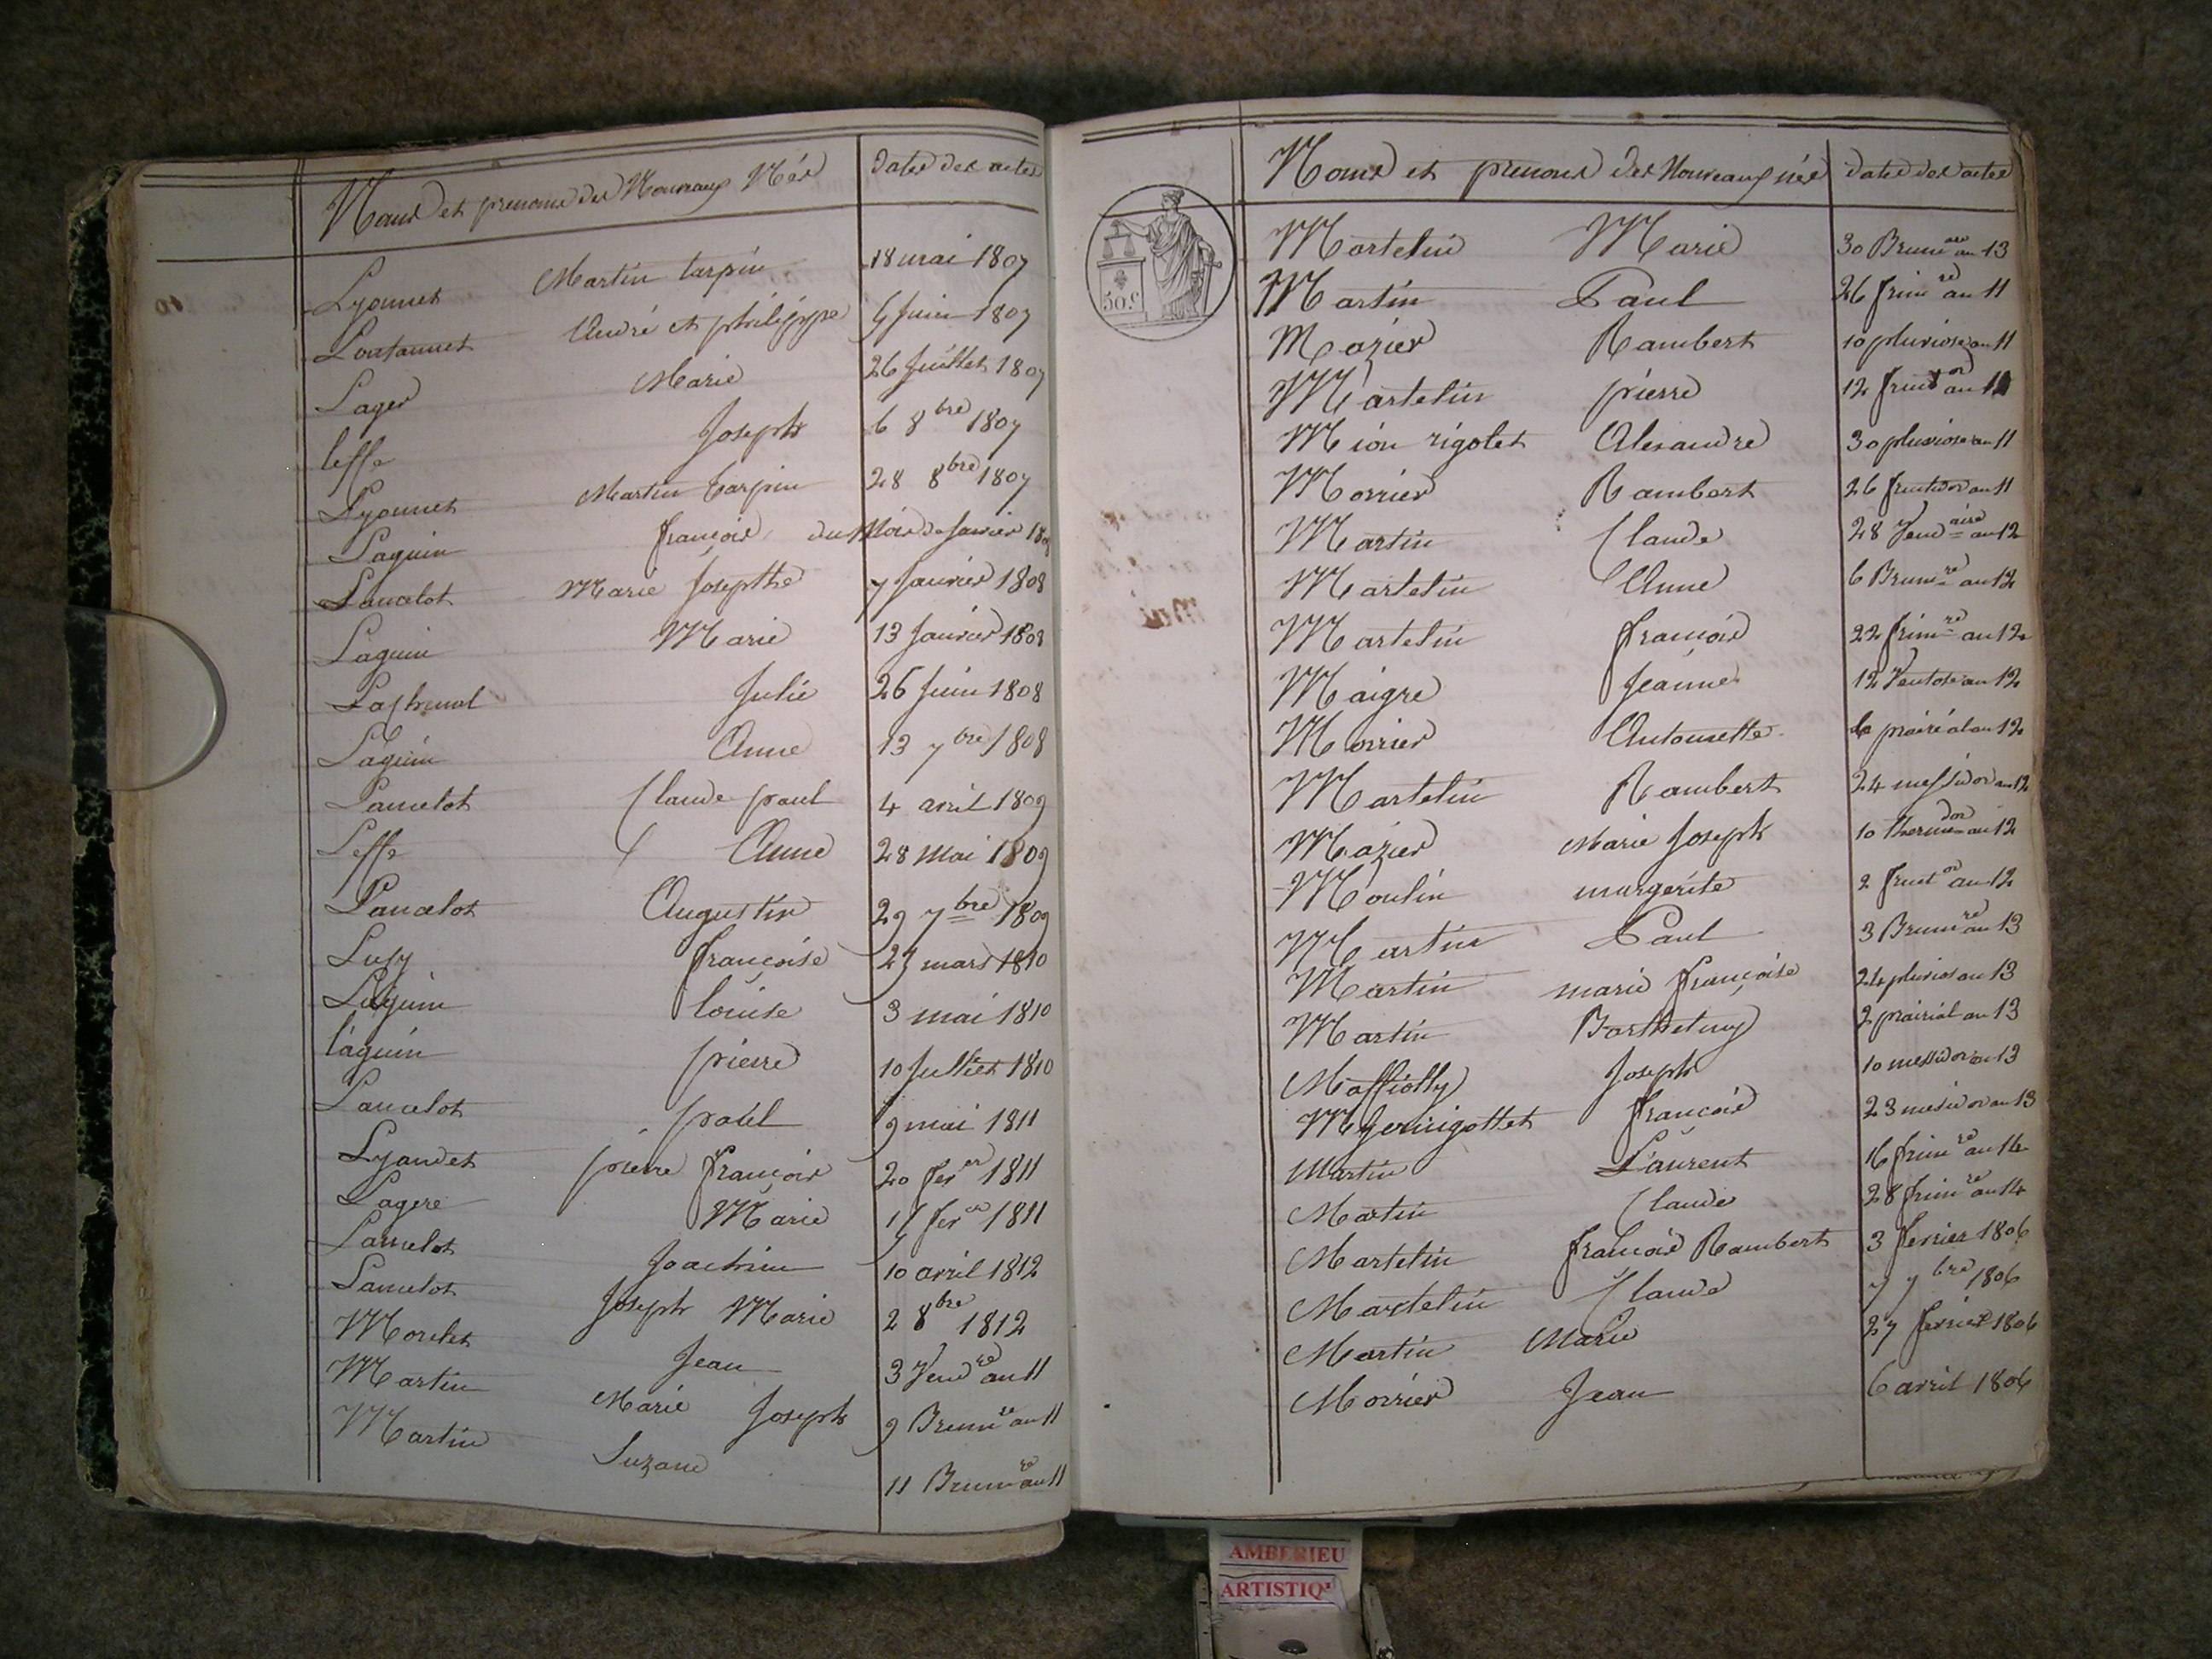 Noms et prenoms des Nouveaux Nés Dates des actes
Lyonnet Martin tarpin 18 mai 1807
André et philippe 4 Juin 1807
Lager Marie 26 Juillet 1807
leffe Joseph 6 8bre 1807
Lyonnet Martin tarpin 28 8bre 1807
Laguin françois du Mois de Janvier 1808
Lancelot Marie Josepthe 7 Janvier 1808
Laguin Marie 13 Janvier 1808
Julie 26 Juin 1808
Laguin Anne 13 7bre 1808
Lancelot Claude paul 4 avril 1809
Leffe Anne 28 Mai 1809
Lancelot Augustin 29 7bre 1809
françoise 27 mars 1810
Laguin louise 3 mai 1810
laguin pierre 10 Julliet 1810
Lancelot paul 9 mai 1811
pierre françois 20 fer er 1811
Lagere Marie fer er 1811
Lancelot Joachim 10 avril 1812
Lancelot Joseph Marie 2 8bre 1812
Morelet Jean 3 Vend re an 11
Martin Marie Joseph 9 Brum re an 11
Martin Suzane 11 Brum re an 11
Noms et prenoms des Nouveaux nés Dates des actes
50 c.
Martelin Marie 30 Brum re an 13
Martin Paul 26 frim re an 11
Mazier Rambert 10 pluviose an 11
Martelin pierre 12 fruct or an 11
Mion rigolet Alexandre 30 pluviose an 11
Morrier Rambert 26 fructidor an 11
Martin Claude 28 Vend aire an 12
Martelin Anne 6 Brum re an 12
Martelin françois 22 frim re an 12
Maigre Jeanne 12 Ventose an 12
Morrier Antoinette prairéal an 12
Martelin Rambert 24 messidor an 12
Mazier Marie Joseph 10 thermi dor an 12
Moulin margerite 2 fruct or an 12
Martin Paul 3 Brum re an 13
Martin marie françoise 24 pluvios an 13
Martin Barthelmy 2 prairial an 13
Maffiolly Joseph 10 messidor an 13
françois 23 mesidor an 13
Martin Laurent 16 frim re an 14
Martin Claude 28 frim re an 14
Martelin françois Rambert 3 fevrier 1806
Martelin Claude 7 7bre 1806
Martin Marie 27 fevrier 1806
Morrier Jean 6 avril 1806
AMBERIEU
ARTISTIQ